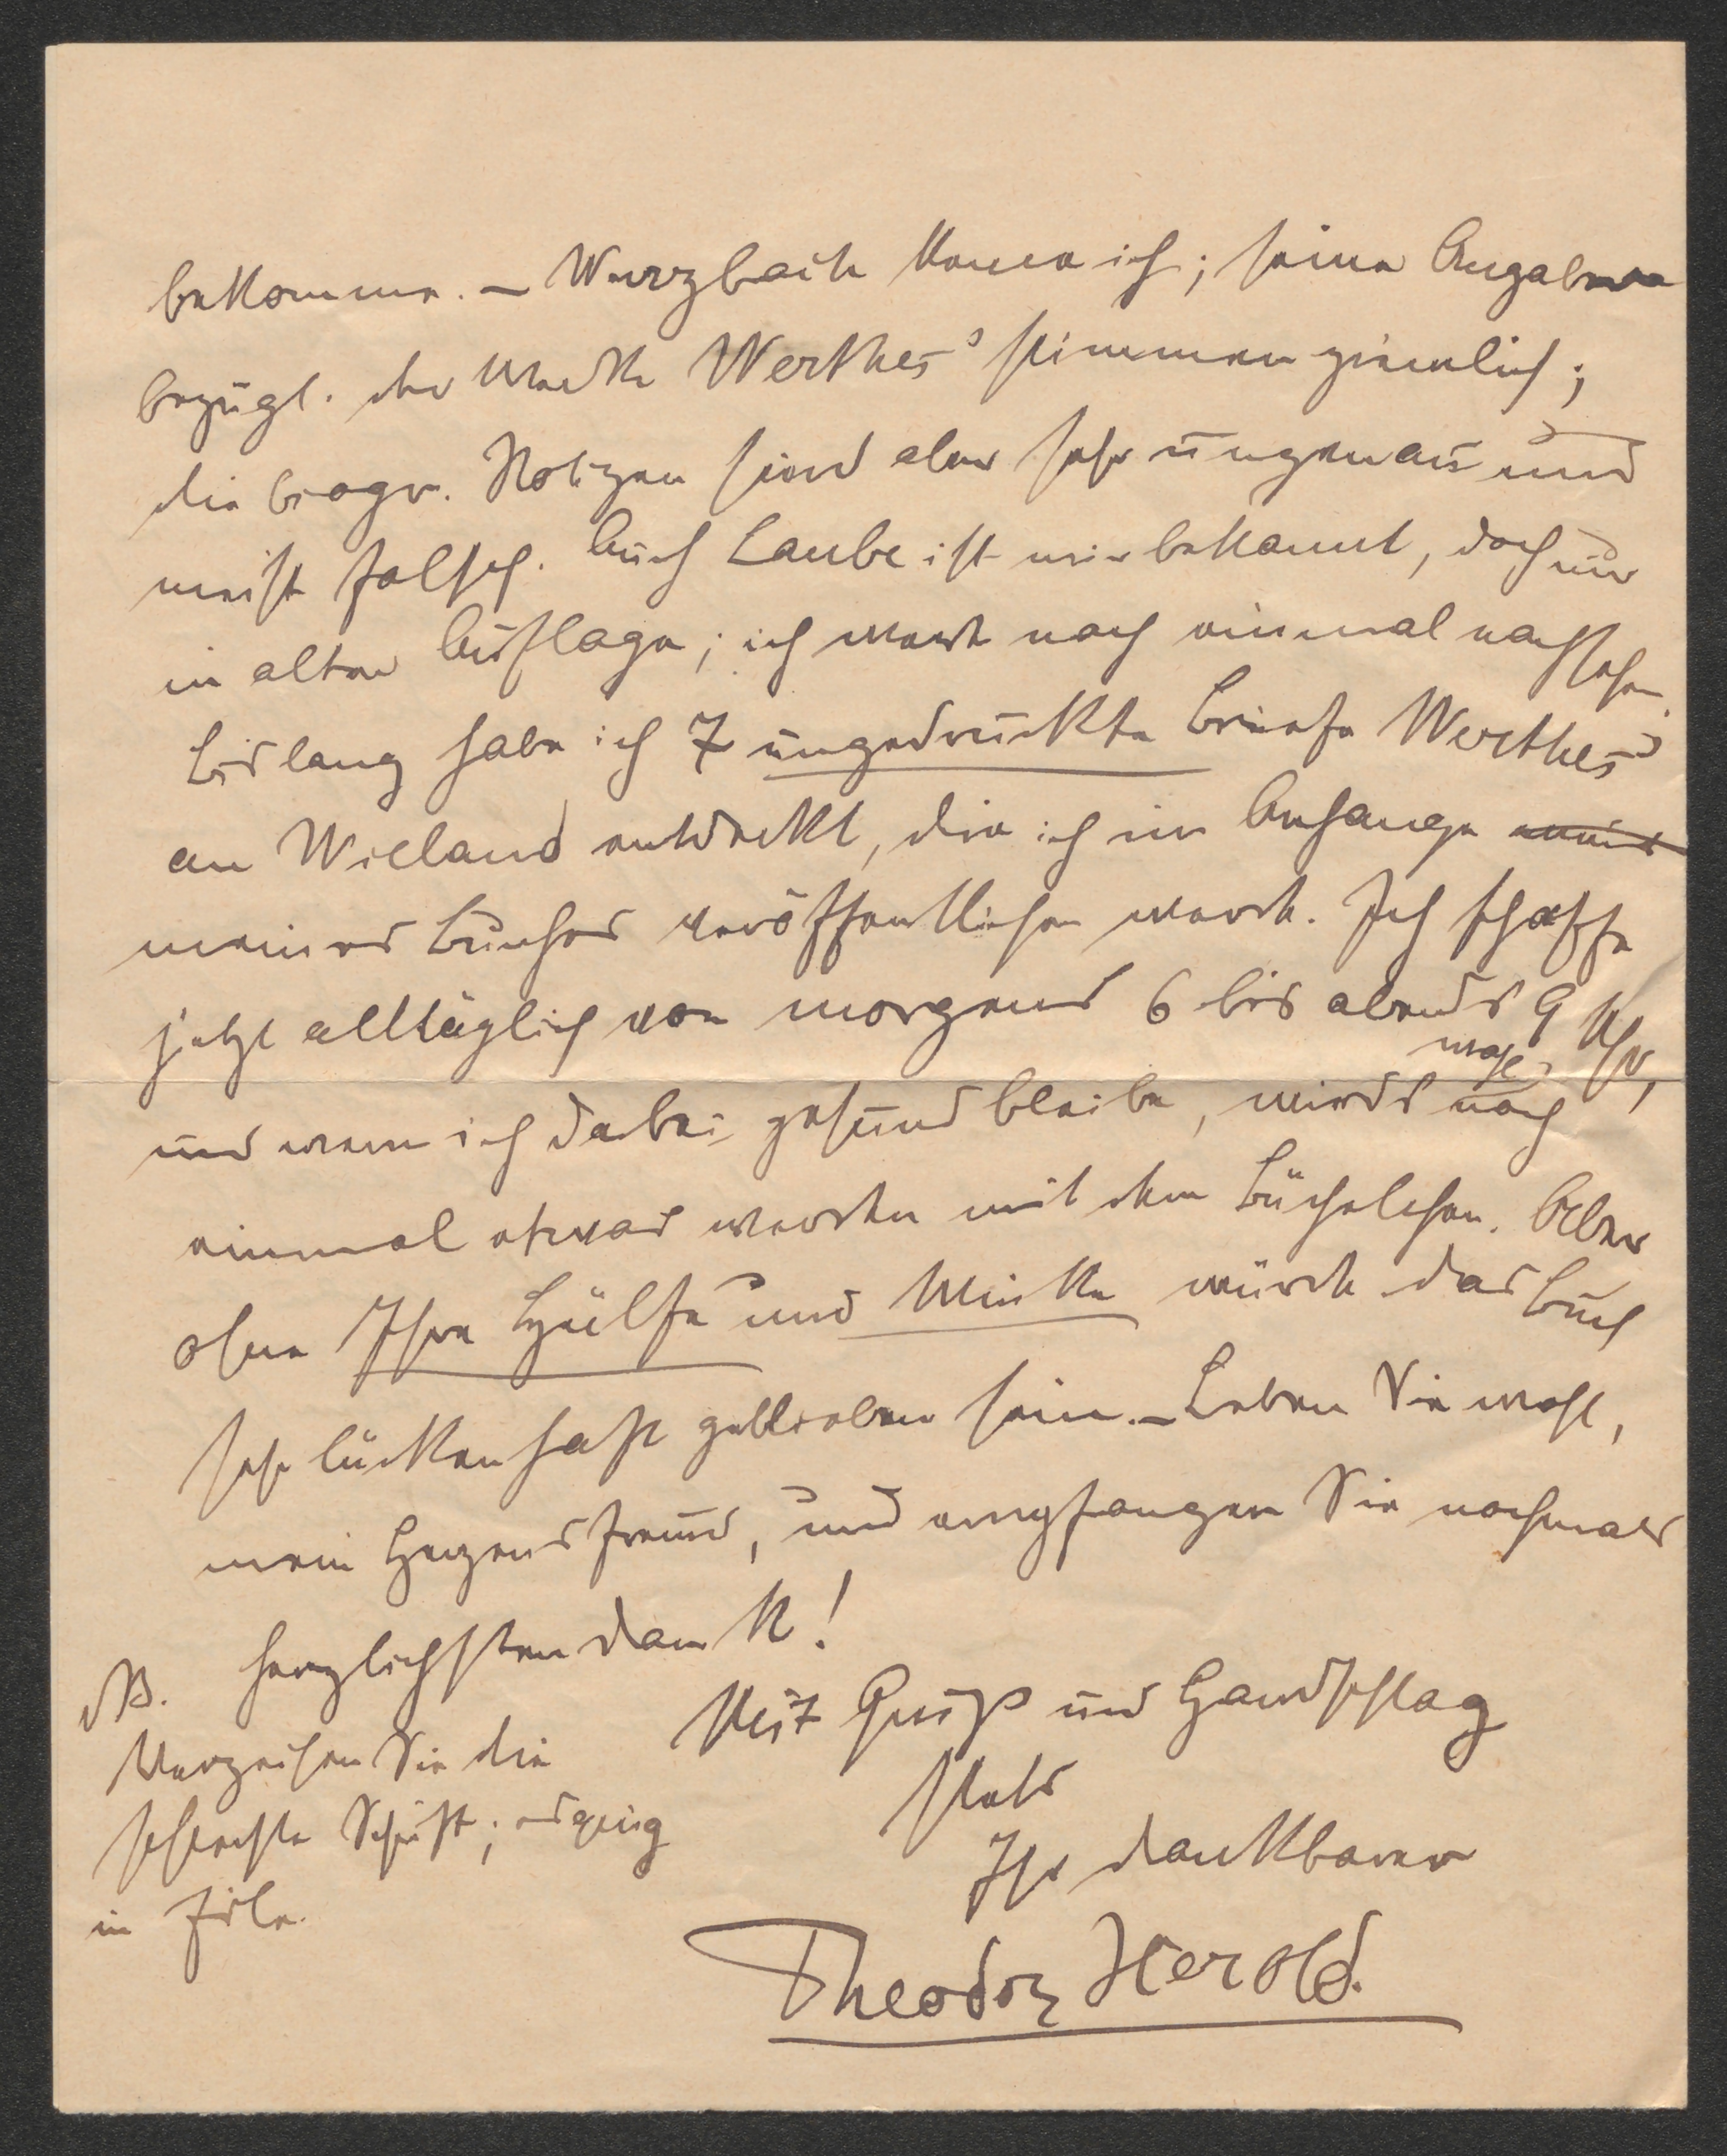 bekomme. – Wurzbach kenne ich; seine Angaben
bezügl. der Werke Werthes' stimmen ziemlich;
die biogr. Notizen sind aber sehr ungenau und
meist falsch. Auch Laube ist mir bekannt, doch nur
in alter Auflage; ich werde noch einmal nachsehen.
Bislang habe ich 7 ungedruckte Briefe Werthes'
an Wieland entdeckt, die ich im Anhange
meines Buches veröffentlichen werde. Ich schaffe
jetzt alltäglich von morgens 6 bis abends 9 Uhr,
und wenn ich dabei gesund bleibe, wirds wohl noch
einmal etwas werden mit dem Büchelchen. Aber
ohne Ihre Hülfe und Winke würde das Buch
sehr lückenhaft geblieben sein. – Leben Sie wohl,
mein Herzensfreund, und empfangen Sie nochmals
herzlichsten Dank!
Mit Gruß und Handschlag
stets
Ihr dankbarer
Theodor Herold.
NB.
Verzeihen Sie die
schlechte Schrift; es ging
in Eile.